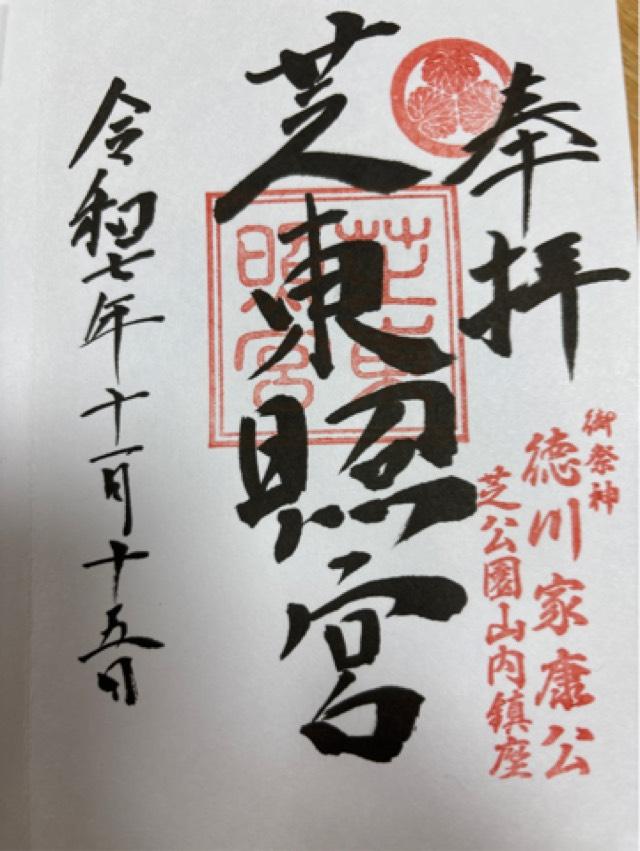 奉拝
御祭神
徳川家康公
芝公園山内鎮座
芝東照宮
芝東照宮
令和七年十一月十五日